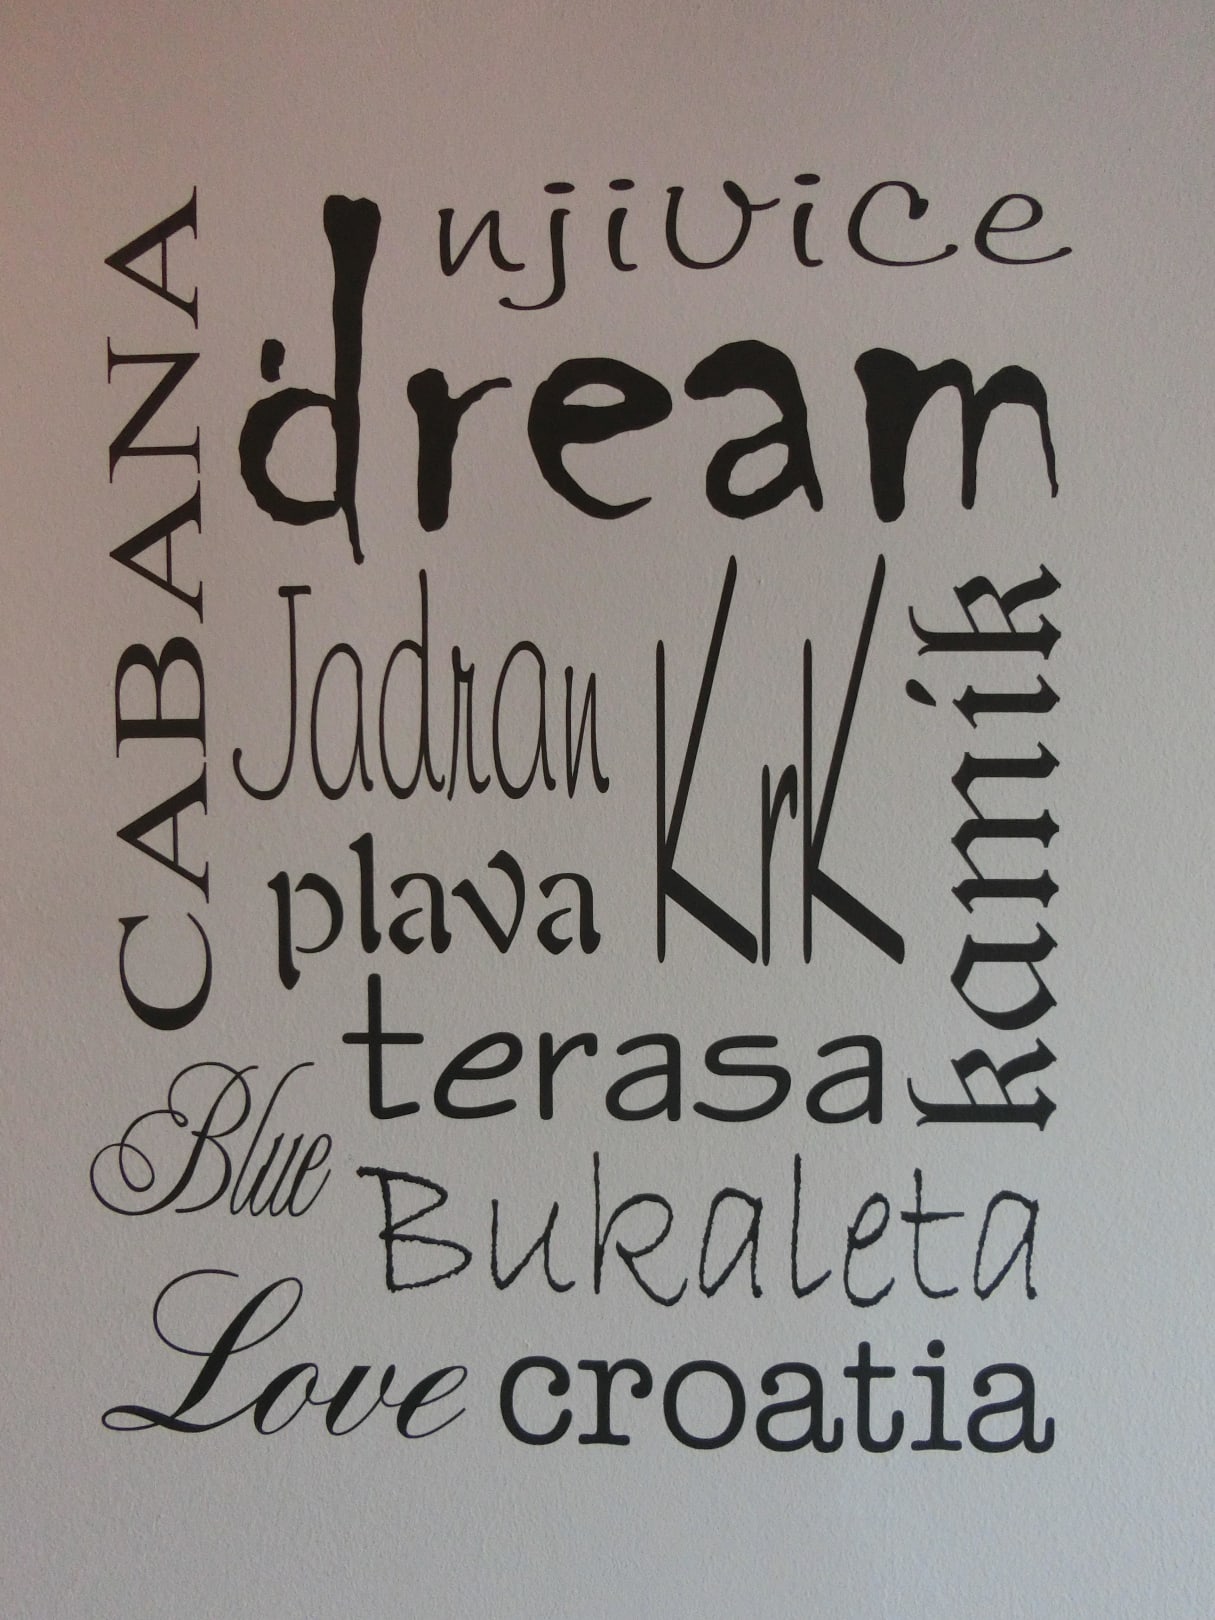 CABANA
njivice
dream
Jadran
KrK
kamik
plava
terasa
Blue
Bukaleta
Love croatia